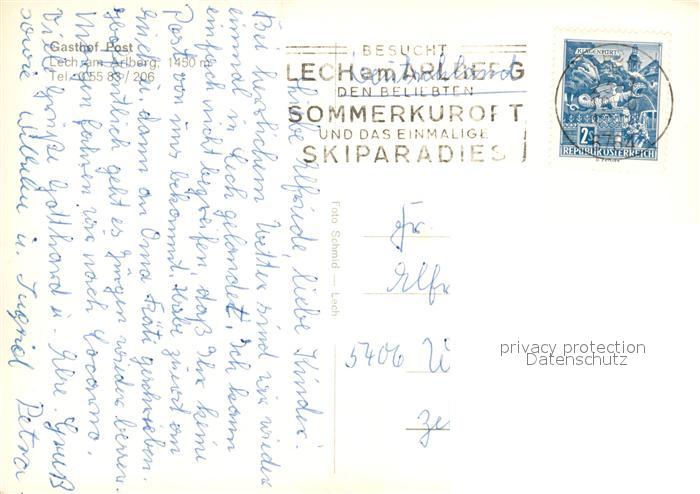 Gasthof Post
Lech am Arlberg, 1450 m
Tel. 0 55 83 / 206
BESUCHT
LECH am ARLBERG
DEN BELIEBTEN
SOMMERKURORT
UND DAS EINMALIGE
SKIPARADIES
KLAGENFURT
2 S
REPUBLIK ÖSTERREICH
Foto Schmid — Lech
Liebe Elfriede, liebe Kinder!
Bei herrlichem Wetter sind wir wieder
einmal in Lech gelandet. Ich kann
einfach nicht begreifen, daß Ihr keine
Post von uns bekommt. Habe zuerst an
und dann an Oma geschrieben.
geht es Jürgen wieder besser.
Morgen fahren wir nach Locarno.
Viele Grüße Gotthard u. Gruß
sowie u. Ingrid Petra
Deutschland
Fr.
Elfr
5406 W
Ze
privacy protection
Datenschutz